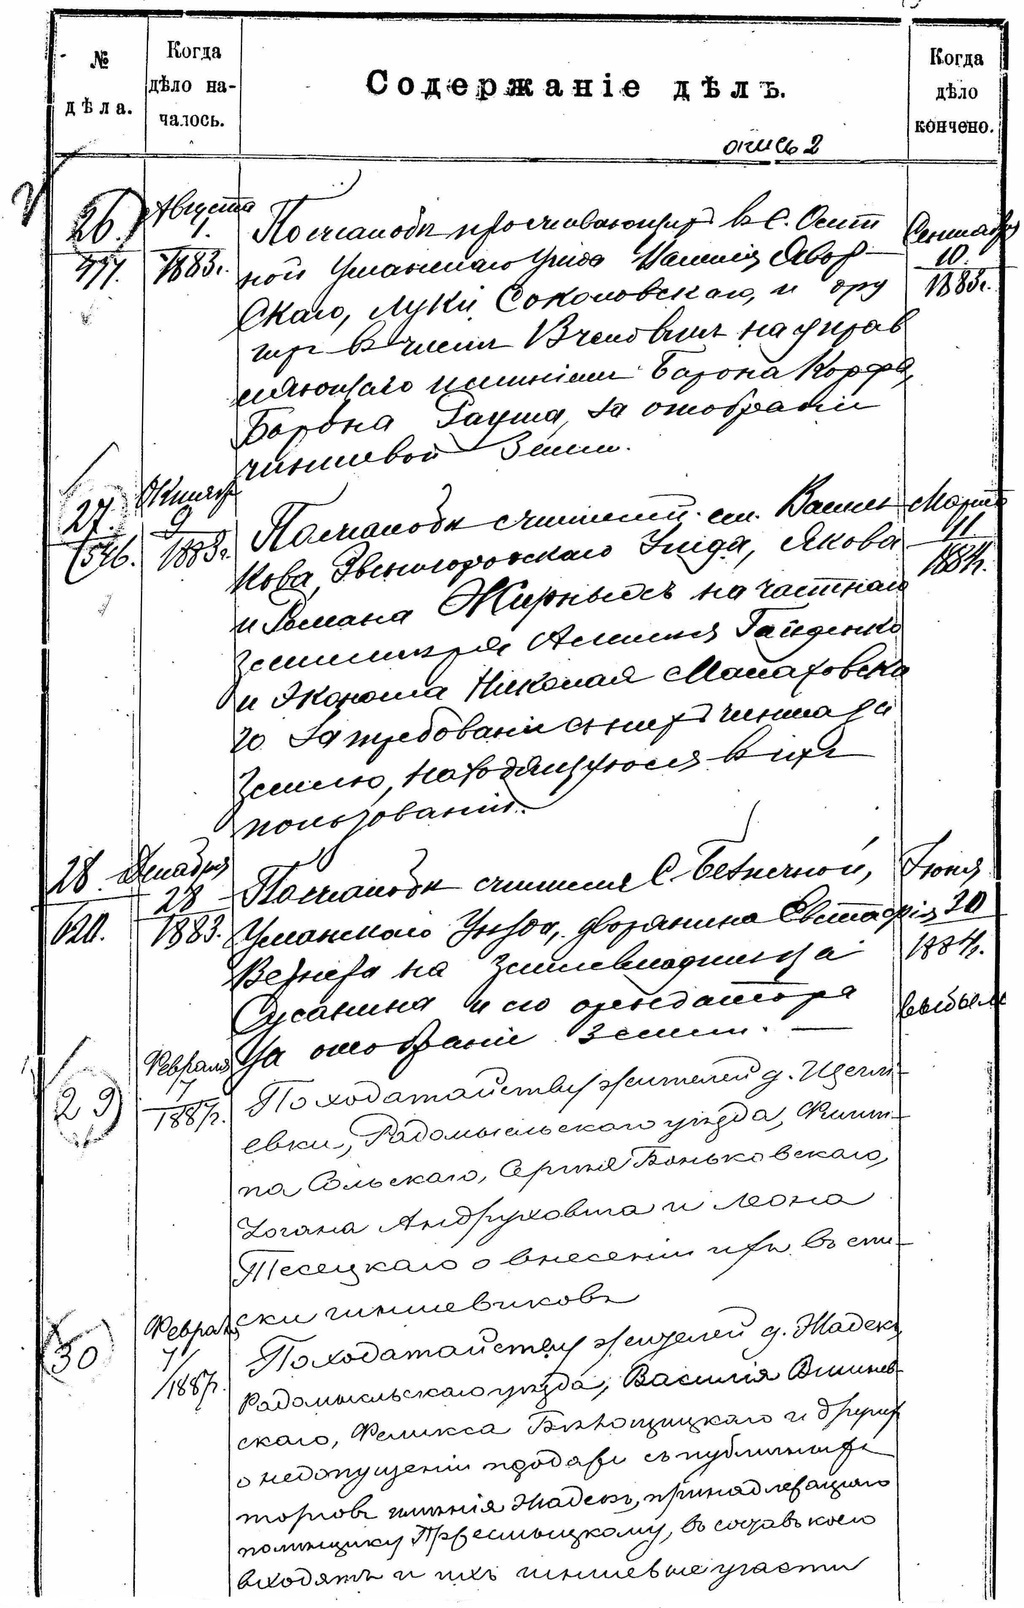 № дѣла.
Когда дѣло на-
чалось.
Содержаніе дѣлъ.
Когда дѣло кончено.
опись 2
26.
777.
Августа
1.
1883г.
Сентября
10.
1883г.
По жалобѣ проживающихъ въ с. Осит
ной Уманскаго уѣзда Явор
скаго, Луки Соколовскаго, и дру
гихъ въ числѣ 13 человѣкъ на управ
ляющаго имѣніемъ Барона Корфа,
Барона Рауша, за отобраніе
чиншевой земли.
27.
546.
Октября
9
1883г.
Марта
11
1884г.
По жалобѣ с. Василь
кова, Звенигородскаго уѣзда, Якова
и Романа Жирныхъ на частнаго
землемѣра Гайденко
и эконома Николая Малаховска
го за требованіе съ нихъ чинша за
землю, находящуюся въ ихъ
пользованіи.
28.
620.
Декабря
28
1883.
Іюня
20
1884г.
выбыло
По жалобѣ с.
Уманскаго уѣзда, дворянина Евстафія
Вернера на землевладѣльца
Сусанина и его арендатора
за отобраніе земли. —
29
Февраля
7
1887г.
По ходатайству жителей д.
евки, Радомысльскаго уѣзда, Филип-
па Сольскаго, Сергѣя Боньковскаго,
Іогана Андруховича и Леона
Тесецкаго о внесеніи ихъ въ спи-
ски чиншевиковъ
30
Февраля
7
1887г.
По ходатайству жителей д.
Радомысльскаго уѣзда, Василія Вишнев-
скаго, Феликса и другихъ
о недопущеніи продажи съ публичныхъ
торговъ имѣнія принадлежащаго
помѣщику въ составъ коего
входятъ и ихъ чиншевые участки